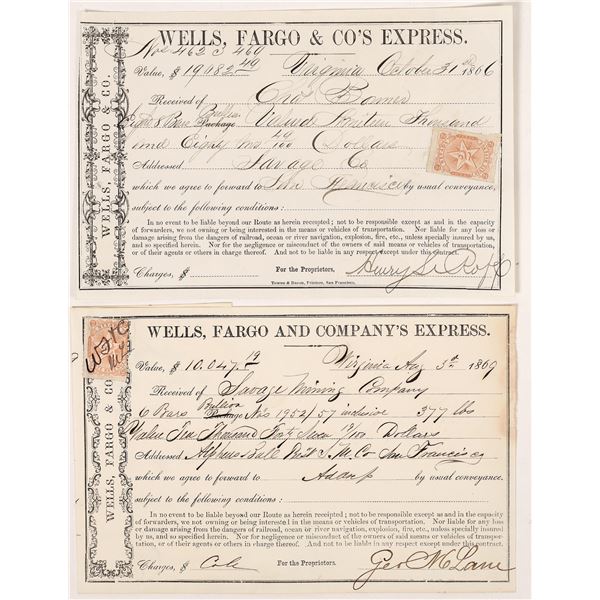 WELLS, FARGO & CO'S EXPRESS.
Nos 462 @ 469
Value, $ 19.082 49 Virginia October 31st 1866
Received of Chas Bonner
Eight 8 Bars Bullion Package Valued Nineteen Thousand
and Eighty two 49/100 Dollars
Addressed Savage Co
which we agree to forward to San Francisco by usual conveyance,
subject to the following conditions:
In no event to be liable beyond our Route as herein receipted; not to be responsible except as and in the capacity
of forwarders, we not owning or being interested in the means or vehicles of transportation. Nor liable for any loss or
damage arising from the dangers of railroad, ocean or river navigation, explosion, fire, etc., unless specially insured by us,
and so specified herein. Nor for the negligence or misconduct of the owners of said means or vehicles of transportation,
or of their agents or others in charge thereof. And not to be liable in any respect outside this contract.
Charges, $ For the Proprietors, Henry St
TOWNE & BACON, Printers, San Francisco.
WELLS, FARGO & CO.
WELLS, FARGO AND COMPANY'S EXPRESS.
W F & Co
Value, $ 10.047 19 Virginia Aug 5th 1869
Received of Savage Mining Company
6 Bars Bullion Package Nos 1952/57 inclusive 377 lbs
Value Ten Thousand Forty Seven 19/100 Dollars
Addressed Alpheus Bull Prest S. M. Co San Francisco
which we agree to forward to Address by usual conveyance.
subject to the following conditions:
IN no event to be liable beyond our Route as herein receipted; not to be responsible except as and in the capacity of
forwarders, we not owning or being interested in the means or vehicles of transportation. Nor liable for any loss
or damage arising from the dangers of railroad, ocean or river navigation, explosion, fire, etc., unless specially insured by
us, and so specified herein. Nor for the negligence or misconduct of the owners of said means or vehicles of transportation,
or of their agents or others in charge thereof. And not to be liable in any respect outside this contract.
Charges, $ Cole For the Proprietors, Geo M Lane
WELLS, FARGO & CO.